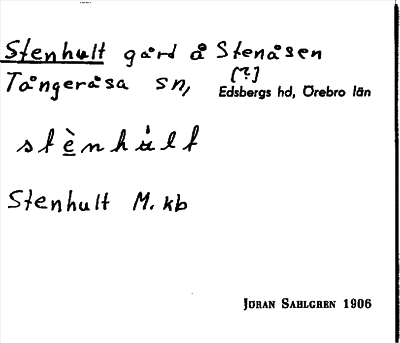 Stenhult gård å Stenåsen
[?]
Tångeråsa sn, Edsbergs hd, Örebro län
stènhu̇lt
Stenhult M. kb
JÖRAN SAHLGREN 1906